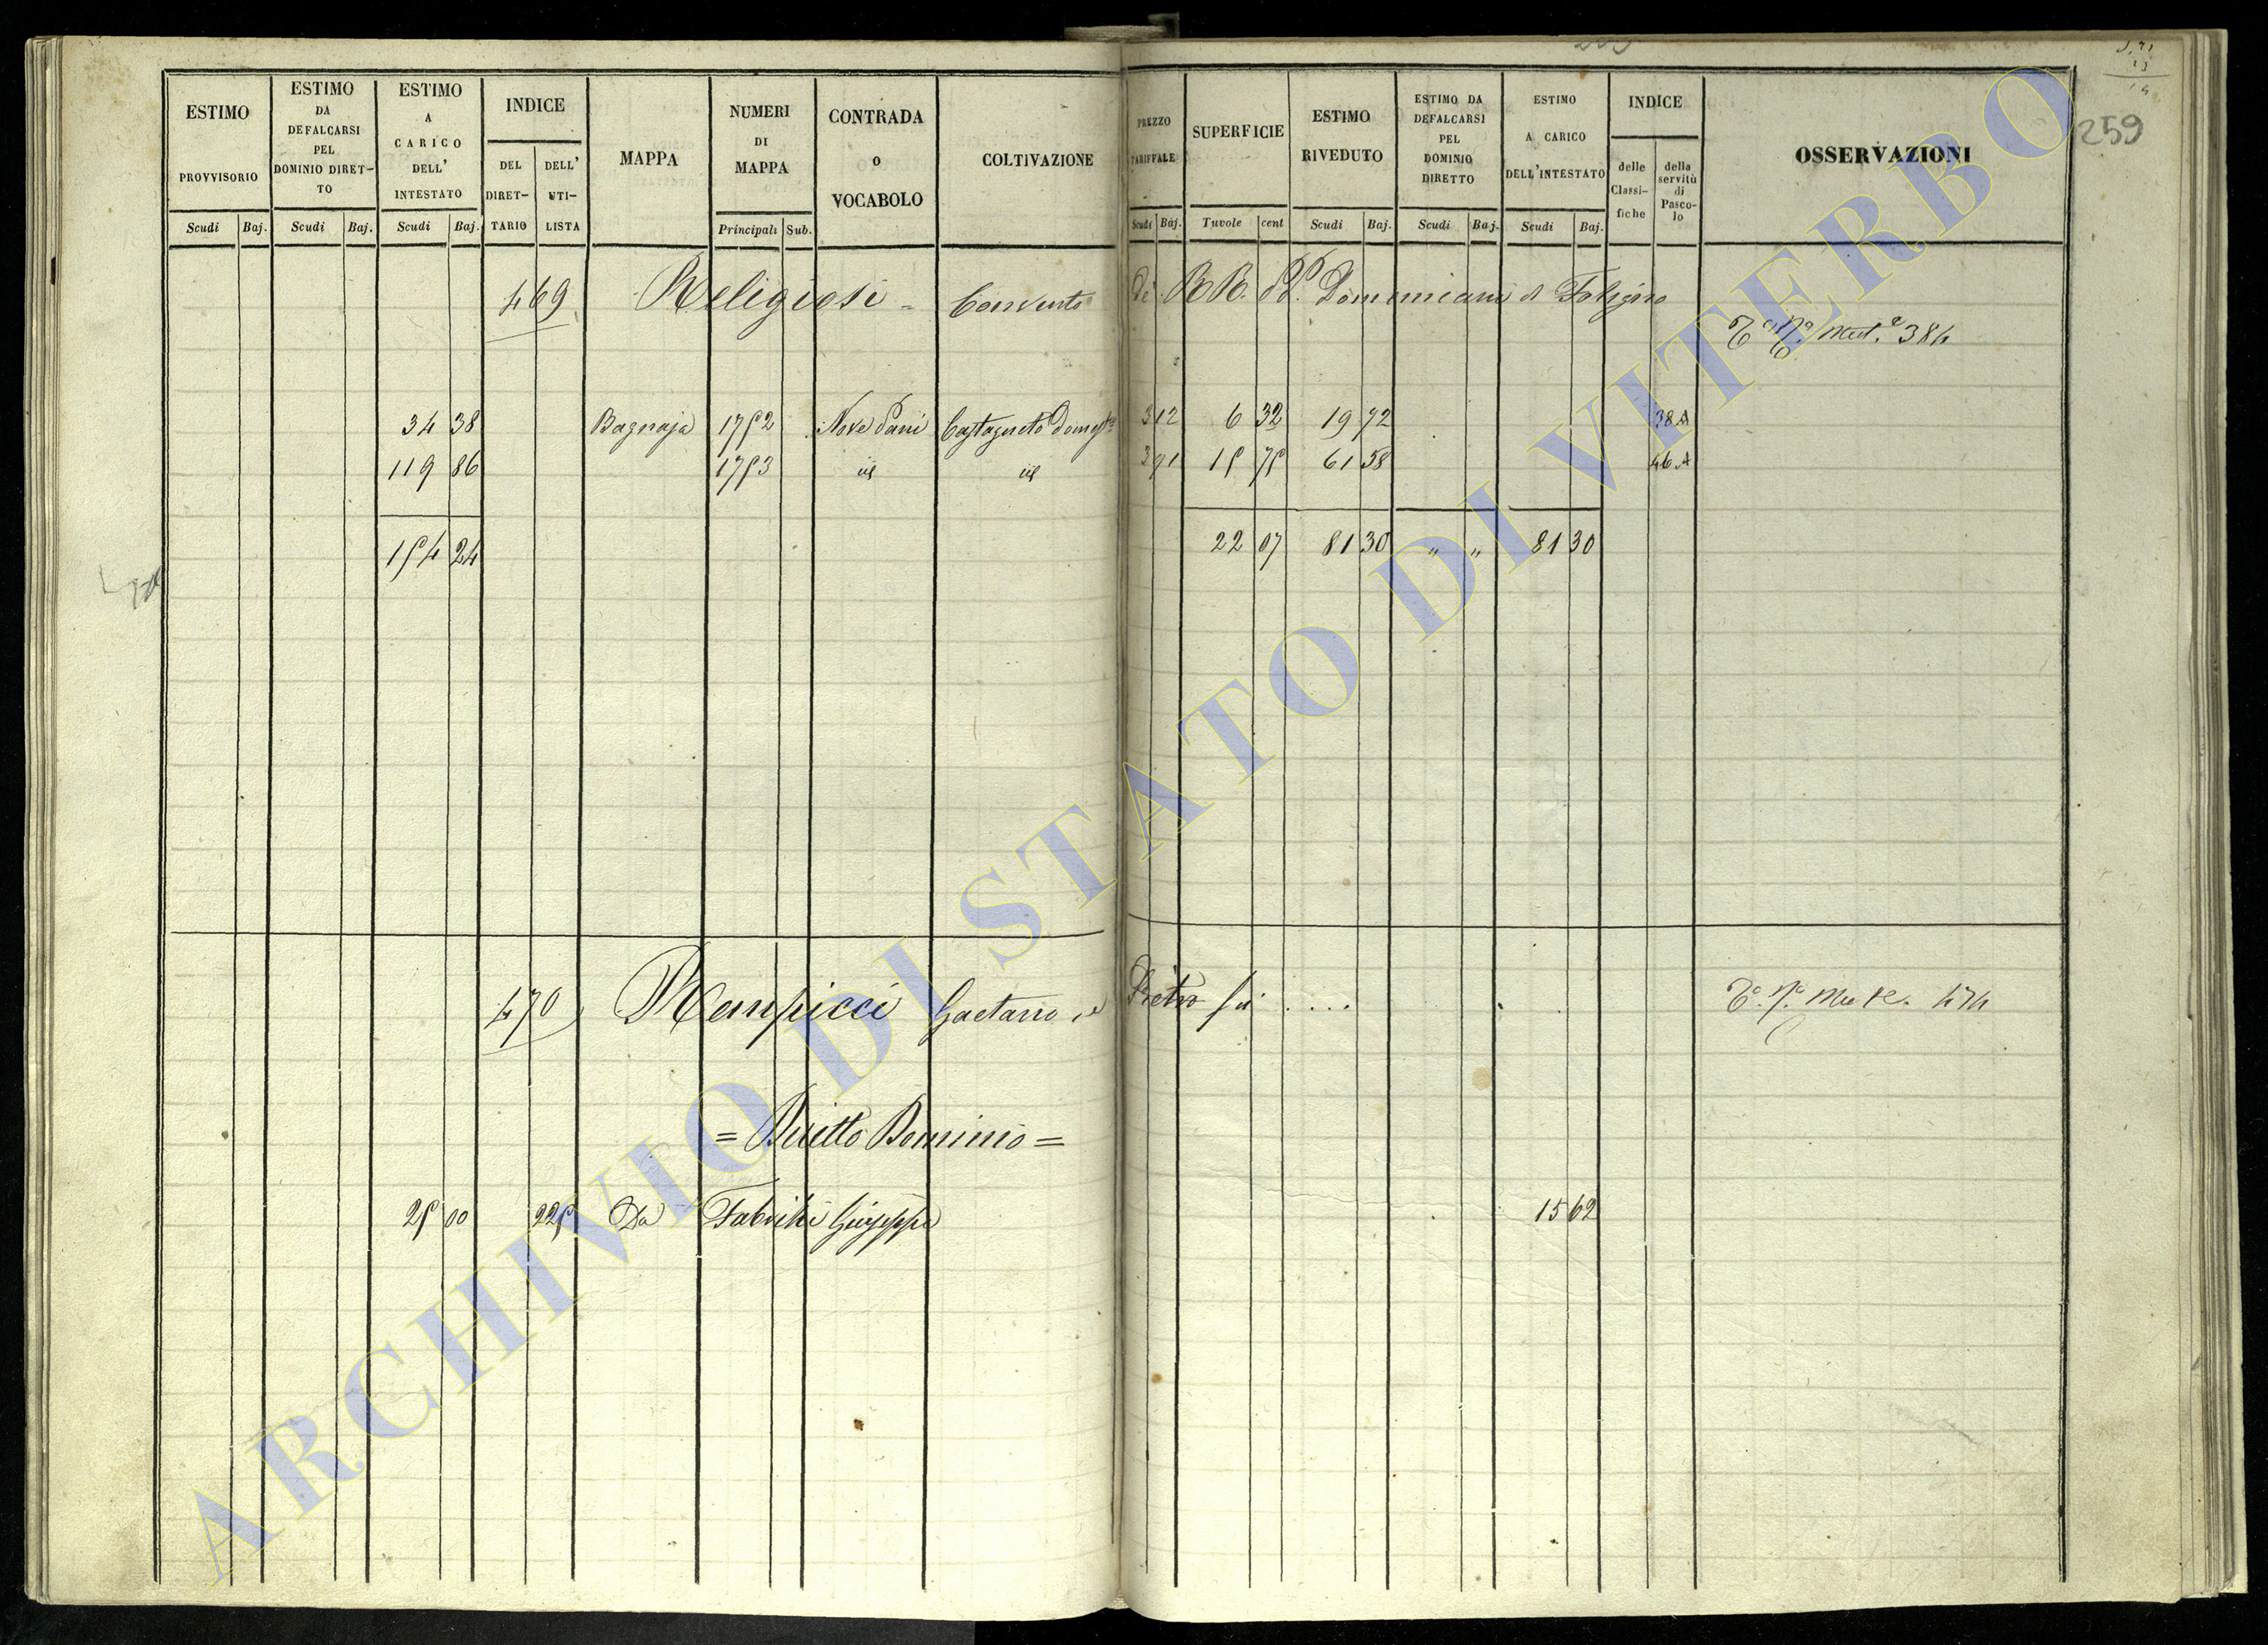 259
ESTIMO PROVVISORIO
ESTIMO DA DEFALCARSI PEL DOMINIO DIRET-TO
ESTIMO A CARICO DELL' INTESTATO
INDICE
DEL DIRET-TARIO
DELL' UTI-LISTA
MAPPA
NUMERI DI MAPPA
CONTRADA O VOCABOLO
COLTIVAZIONE
PREZZO TARIFFALE
SUPERFICIE
ESTIMO RIVEDUTO
ESTIMO DA DEFALCARSI PEL DOMINIO DIRETTO
ESTIMO A CARICO DELL'INTESTATO
INDICE
delle Classi-fiche
della servitù di Pasco-lo
OSSERVAZIONI
Scudi Baj. Scudi Baj. Scudi Baj. Principali Sub. Scudi Baj. Tavole cent Scudi Baj. Scudi Baj. Scudi Baj.
469 Religiosi = Convento di RR. PP. Domenicani di Foligno
384
34 38 Bagnaja 1752 Nove Pani Castagneto Domest.º 3 12 6 32 19 72 38 A
119 86 1753 id id 3 91 15 75 61 58 46 A
154 24 22 07 81 30 " " 81 30
470 Rempicci Gaetano, e Pietro fu . . . .
474
= Diretto Dominio =
25 00 225 Da Fabrihi Giuseppe 15 62
ARCHIVIO DI STATO DI VITERBO